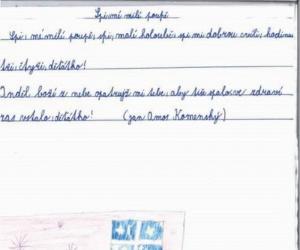 Spi, mé milé poupě
Spi, mé milé poupě, spi, malí holoubě, spi mi dobrou chvíli, hodinu
tři, čtyři, děťátko!
Anděl boží z nebe opatruj mi tebe, aby tvé spalo, ve zdraví
zas vstalo, děťátko! (Jan Amos Komenský)